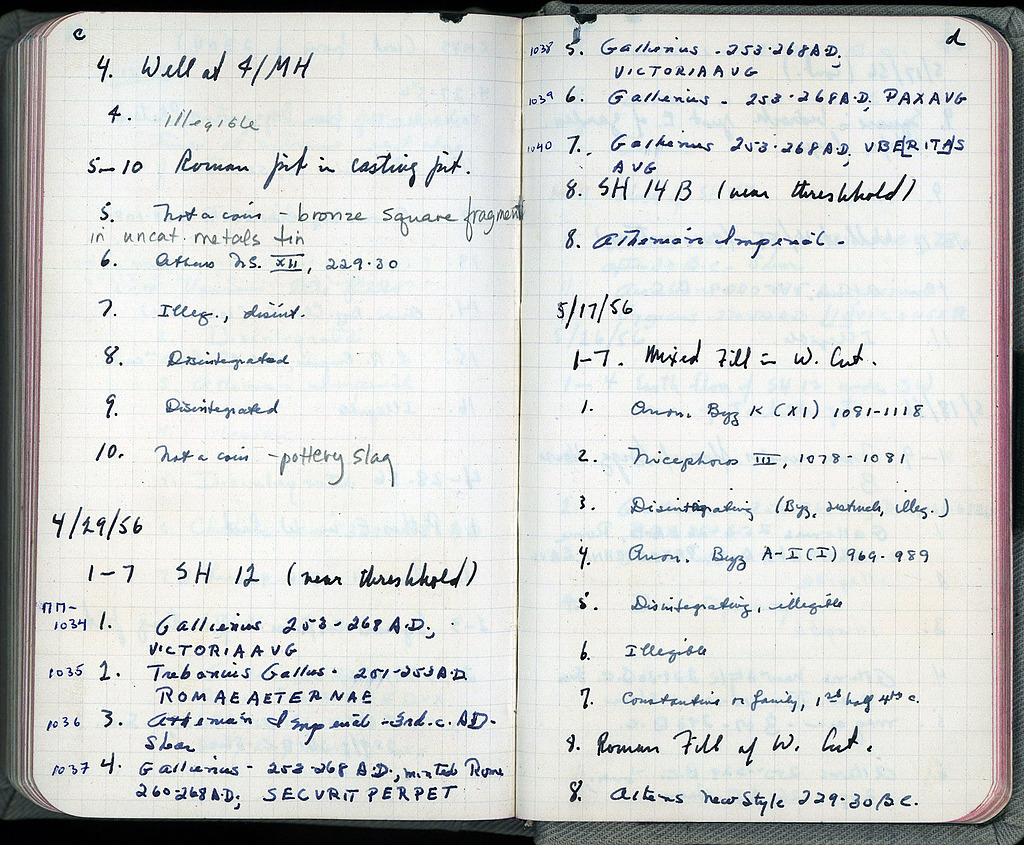 c
4. Well at 4/MH
4. illegible
5-10 Roman pit in casting pit.
5. Not a coin - bronze square fragment
in uncat. metals tin
6. Athens N.S. XII, 229-30
7. Illeg., disint.
8. Disintegrated
9. Disintegrated
10. Not a coin - pottery slag
4/29/56
1-7 SH 12 (near threshhold)
ΠΠ-
1034 1. Gallienus 253-268 A.D.;
VICTORIA AVG
1035 2. Trebonius Gallus - 251-253 A.D.
ROMAE AETERNAE
1036 3. Athenian Imperial - 3rd. c. AD-
1037 4. Gallienus - 253-268 A.D., minted Rome
260-268 A.D; SECVRIT PERPET
d
1038 5. Gallienus - 253-268 A.D;
VICTORIA AVG
1039 6. Gallienus - 253-268 A.D; PAX AVG
1040 7. Gallienus 253-268 A.D; VBERITAS
AVG
8. SH 14 B (near threshhold)
8. Athenian Imperial -
5/17/56
1-7. Mixed Fill in W. Cut.
1. Anon. Byz K (XI) 1081-1118
2. Nicephoros III, 1078-1081
3. Disintegrating (Byz, restruck, illeg.)
4. Anon. Byz A-I (I) 969-989
5. Disintegrating, illegible
6. Illegible
7. Constantine or family, 1st half 4th c.
8. Roman Fill of W. Cut.
8. Athens New Style 229-30 B.C.